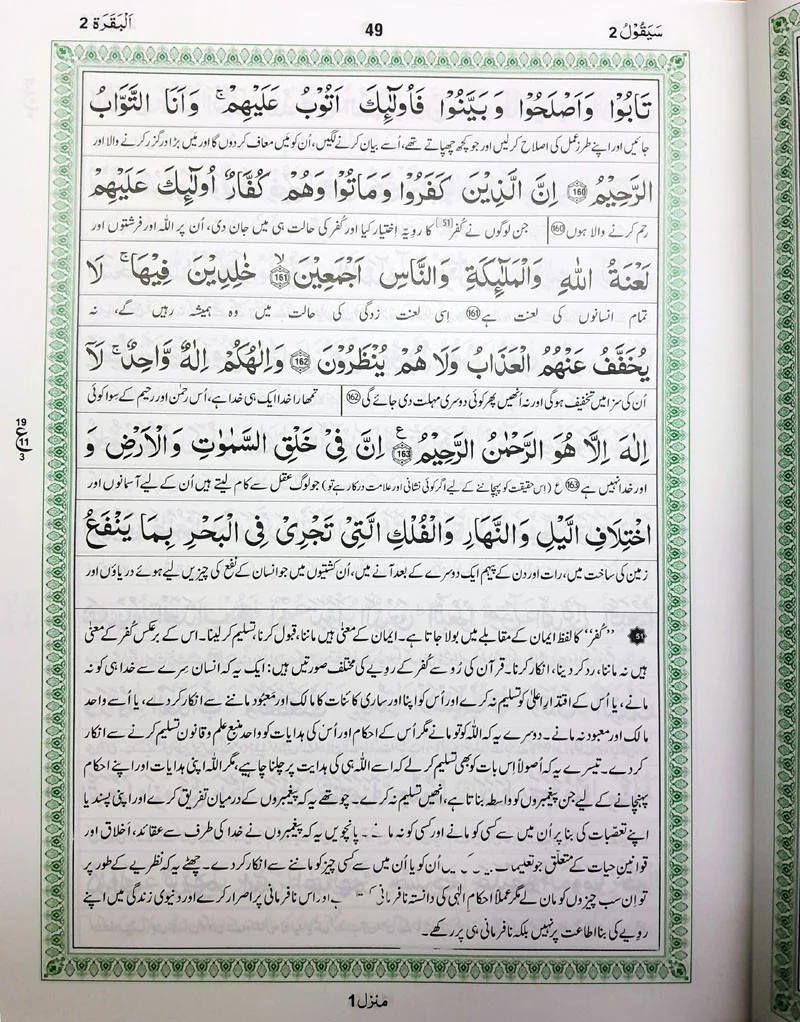 سَیَقُوْلُ 2
49
اَلْبَقَرَة 2
تَابُوْا وَاَصْلَحُوْا وَبَیَّنُوْا فَاُولٰٓئِكَ اَتُوْبُ عَلَیْهِمْ ۚ وَاَنَا التَّوَّابُ
جائیں اور اپنے طرزِ عمل کی اصلاح کرلیں اور جو کچھ چھپاتے تھے، اُسے بیان کرنے لگیں، اُن کو مَیں معاف کردوں گا اور مَیں بڑا درگزر کرنے والا اور
الرَّحِیْمُ 160 اِنَّ الَّذِیْنَ كَفَرُوْا وَمَاتُوْا وَهُمْ كُفَّارٌ اُولٰٓئِكَ عَلَیْهِمْ
رحم کرنے والا ہوں 160 جن لوگوں نے کُفر [51] کا رویّہ اختیار کیا اور کُفر کی حالت ہی میں جان دی، اُن پر اللہ اور فرشتوں اور
لَعْنَةُ اللّٰهِ وَالْمَلٰٓئِكَةِ وَالنَّاسِ اَجْمَعِیْنَ ۙ 161 خٰلِدِیْنَ فِیْهَا ۚ لَا
تمام انسانوں کی لعنت ہے 161 اِسی لعنت زدگی کی حالت میں وہ ہمیشہ رہیں گے، نہ
یُخَفَّفُ عَنْهُمُ الْعَذَابُ وَلَا هُمْ یُنْظَرُوْنَ 162 وَاِلٰهُكُمْ اِلٰهٌ وَّاحِدٌ ۚ لَآ
اُن کی سزا میں تخفیف ہوگی اور نہ اُنھیں پھر کوئی دوسری مہلت دی جائے گی 162 تمھارا خدا ایک ہی خدا ہے، اُس رحمٰن اور رحیم کے سوا کوئی
اِلٰهَ اِلَّا هُوَ الرَّحْمٰنُ الرَّحِیْمُ 163 ع اِنَّ فِیْ خَلْقِ السَّمٰوٰتِ وَالْاَرْضِ وَ
19
ع
11
3
اور خدا نہیں ہے 163 ع (اس حقیقت کو پہچاننے کے لیے اگر کوئی نشانی اور علامت درکار ہے تو) جو لوگ عقل سے کام لیتے ہیں اُن کے لیے آسمانوں اور
اخْتِلَافِ الَّیْلِ وَالنَّهَارِ وَالْفُلْكِ الَّتِیْ تَجْرِیْ فِی الْبَحْرِ بِمَا یَنْفَعُ
زمین کی ساخت میں، رات اور دن کے پیہم ایک دوسرے کے بعد آنے میں، اُن کشتیوں میں جو انسان کے نفع کی چیزیں لیے ہوئے دریاؤں اور
51 ‘‘کُفر’’ کا لفظ ایمان کے مقابلے میں بولا جاتا ہے۔ ایمان کے معنی ہیں ماننا، قبول کرنا، تسلیم کرلینا۔ اس کے برعکس کُفر کے معنی
ہیں نہ ماننا، رد کر دینا، انکار کرنا۔ قرآن کی رُو سے کُفر کے رویے کی مختلف صورتیں ہیں: ایک یہ کہ انسان سِرے سے خدا ہی کو نہ
مانے، یا اُس کے اقتدارِ اعلیٰ کو تسلیم نہ کرے اور اُس کو اپنا اور ساری کائنات کا مالک اور معبود ماننے سے انکار کردے، یا اُسے واحد
مالک اور معبود نہ مانے۔ دوسرے یہ کہ اللہ کو تو مانے مگر اُس کے احکام اور اُس کی ہدایات کو واحد منبعِ علم و قانون تسلیم کرنے سے انکار
کردے۔ تیسرے یہ کہ اُصولاً اِس بات کو بھی تسلیم کرلے کہ اسے اللہ ہی کی ہدایت پر چلنا چاہیے، مگر اللہ اپنی ہدایات اور اپنے احکام
پہنچانے کے لیے جن پیغمبروں کو واسطہ بناتا ہے، انھیں تسلیم نہ کرے۔ چوتھے یہ کہ پیغمبروں کے درمیان تفریق کرے اور اپنی پسند یا
اپنے تعصبات کی بنا پر اُن میں سے کسی کو مانے اور کسی کو نہ مانے۔ پانچویں یہ کہ پیغمبروں نے خدا کی طرف سے عقائد، اَخلاق اور
قوانینِ حیات کے متعلق جو تعلیمات اُن کو یا اُن میں سے کسی چیز کو ماننے سے انکار کردے۔ چھٹے یہ کہ نظریے کے طور پر
تو اِن سب چیزوں کو مان لے مگر عملاً احکامِ الٰہی کی دانستہ نافرمانی اور اس نافرمانی پر اصرار کرے اور دنیوی زندگی میں اپنے
رویے کی بنا اطاعت پر نہیں بلکہ نافرمانی ہی پر رکھے۔
منزل 1